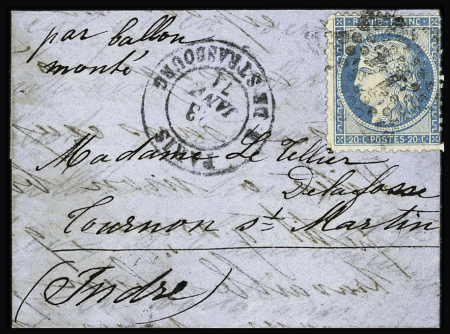 par ballon
monté
REPUB. FRANC.
20 C. POSTES 20 C.
PARIS
R. DE STRASBOURG
JANV.
71
Madame Le Tellier
Delafosse
Tournon st Martin
(Indre)